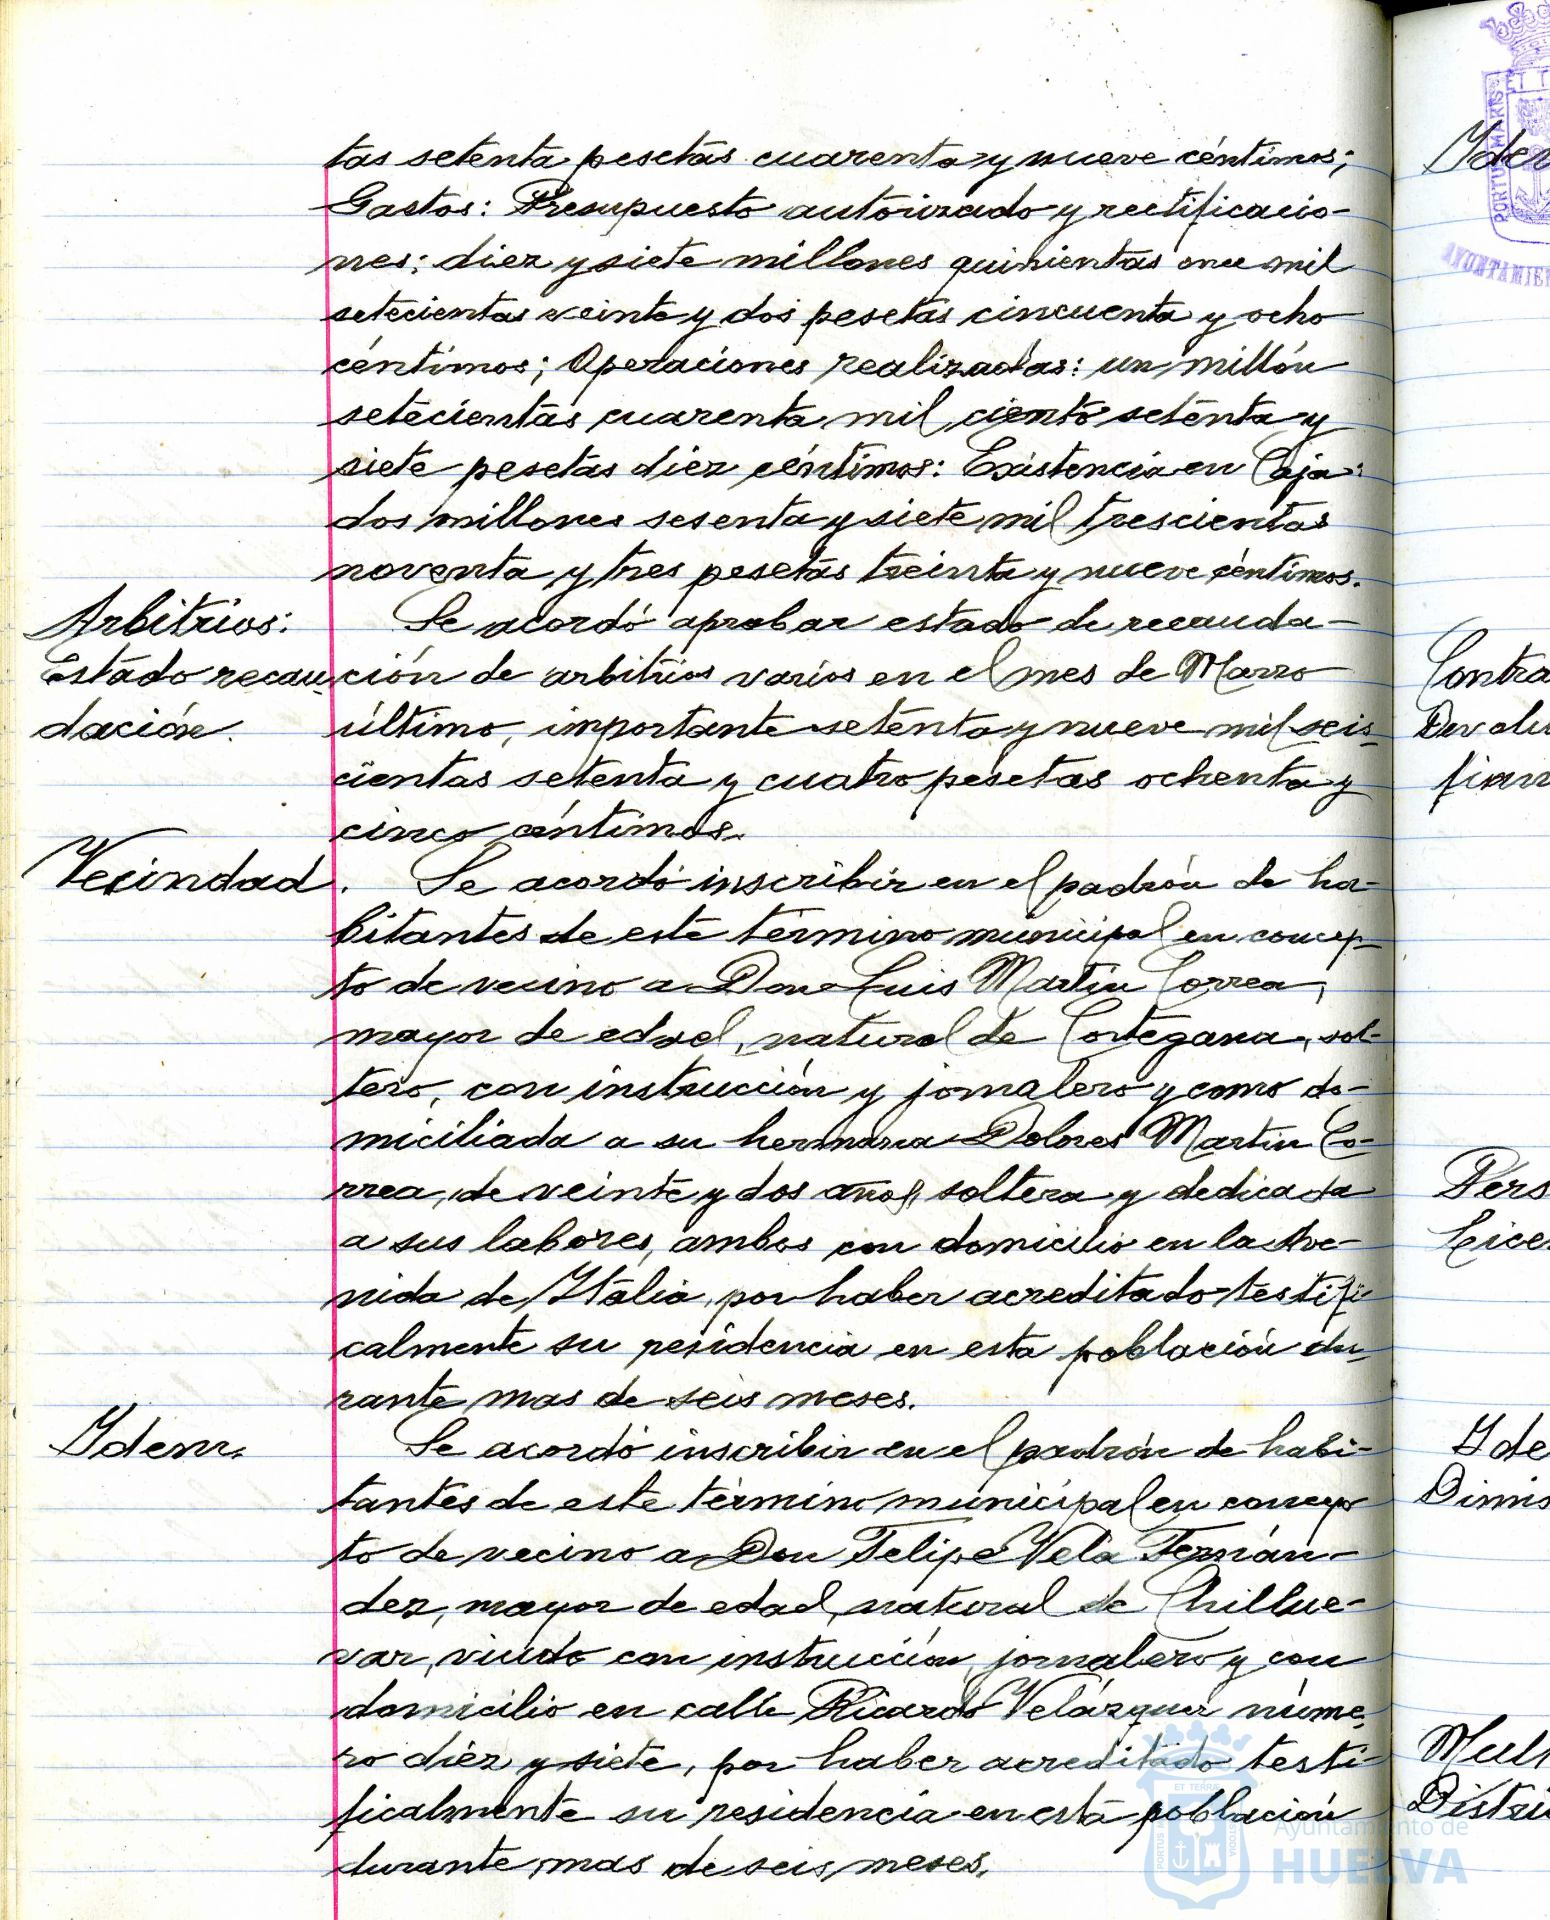 tas setenta pesetas cuarenta y nueve céntimos;
Gastos: Presupuesto autorizado y rectificacio-
nes; diez y siete millones quinientas once mil
setecientas veinte y dos pesetas cincuenta y ocho
céntimos; Operaciones realizadas: un millón
setecientas cuarenta mil ciento setenta y
siete pesetas diez céntimos: Existencia en Caja:
dos millones sesenta y siete mil trescientas
noventa y tres pesetas treinta y nueve céntimos.
Arbitrios:
Estado recau-
dación.
Se acordó aprobar estado de recauda-
ción de arbitrios varios en el mes de Marzo
último, importante setenta y nueve mil seis-
cientas setenta y cuatro pesetas ochenta y
cinco céntimos.
Vecindad.
Se acordó inscribir en el padrón de ha-
bitantes de este término municipal en concep-
to de vecino a Don Luis Martín Correa,
mayor de edad, natural de Cortegana, sol-
tero, con instrucción y jornalero y como do-
miciliada a su hermana Dolores Martín Co-
rrea, de veinte y dos años, soltera y dedicada
a sus labores, ambos con domicilio en la Ave-
nida de Italia, por haber acreditado testifi-
calmente su residencia en esta población du-
rante mas de seis meses.
Idem.
Se acordó inscribir en el padrón de habi-
tantes de este término municipal en concep-
to de vecino a Don Felipe Vela Fernán-
dez, mayor de edad, natural de Chillue-
var, viudo con instrucción, jornalero y con
domicilio en calle Ricardo Velázquez núme-
ro diez y siete, por haber acreditado testi-
ficalmente su residencia en esta población
durante mas de seis meses.
Ayuntamiento de
HUELVA
PORTUS MARIS
ET T
AYUNTAMIEN
Iden
Contra
Devolu
fian
Pers
Lice
Ide
Dimis
Mult
Distri